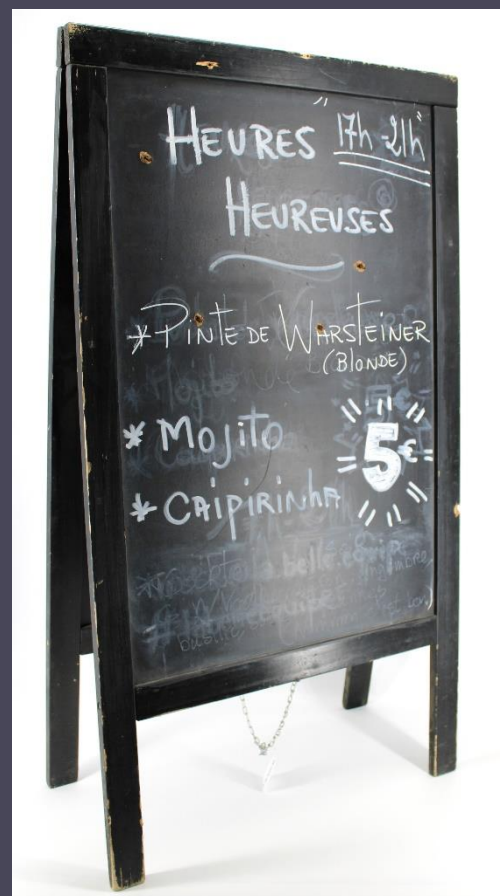 HEURES "17h-21h"
HEUREUSES
* PINTE DE WARSTEINER
(BLONDE)
* MOJITO
5€
* CAIPIRINHA
la belle équipe